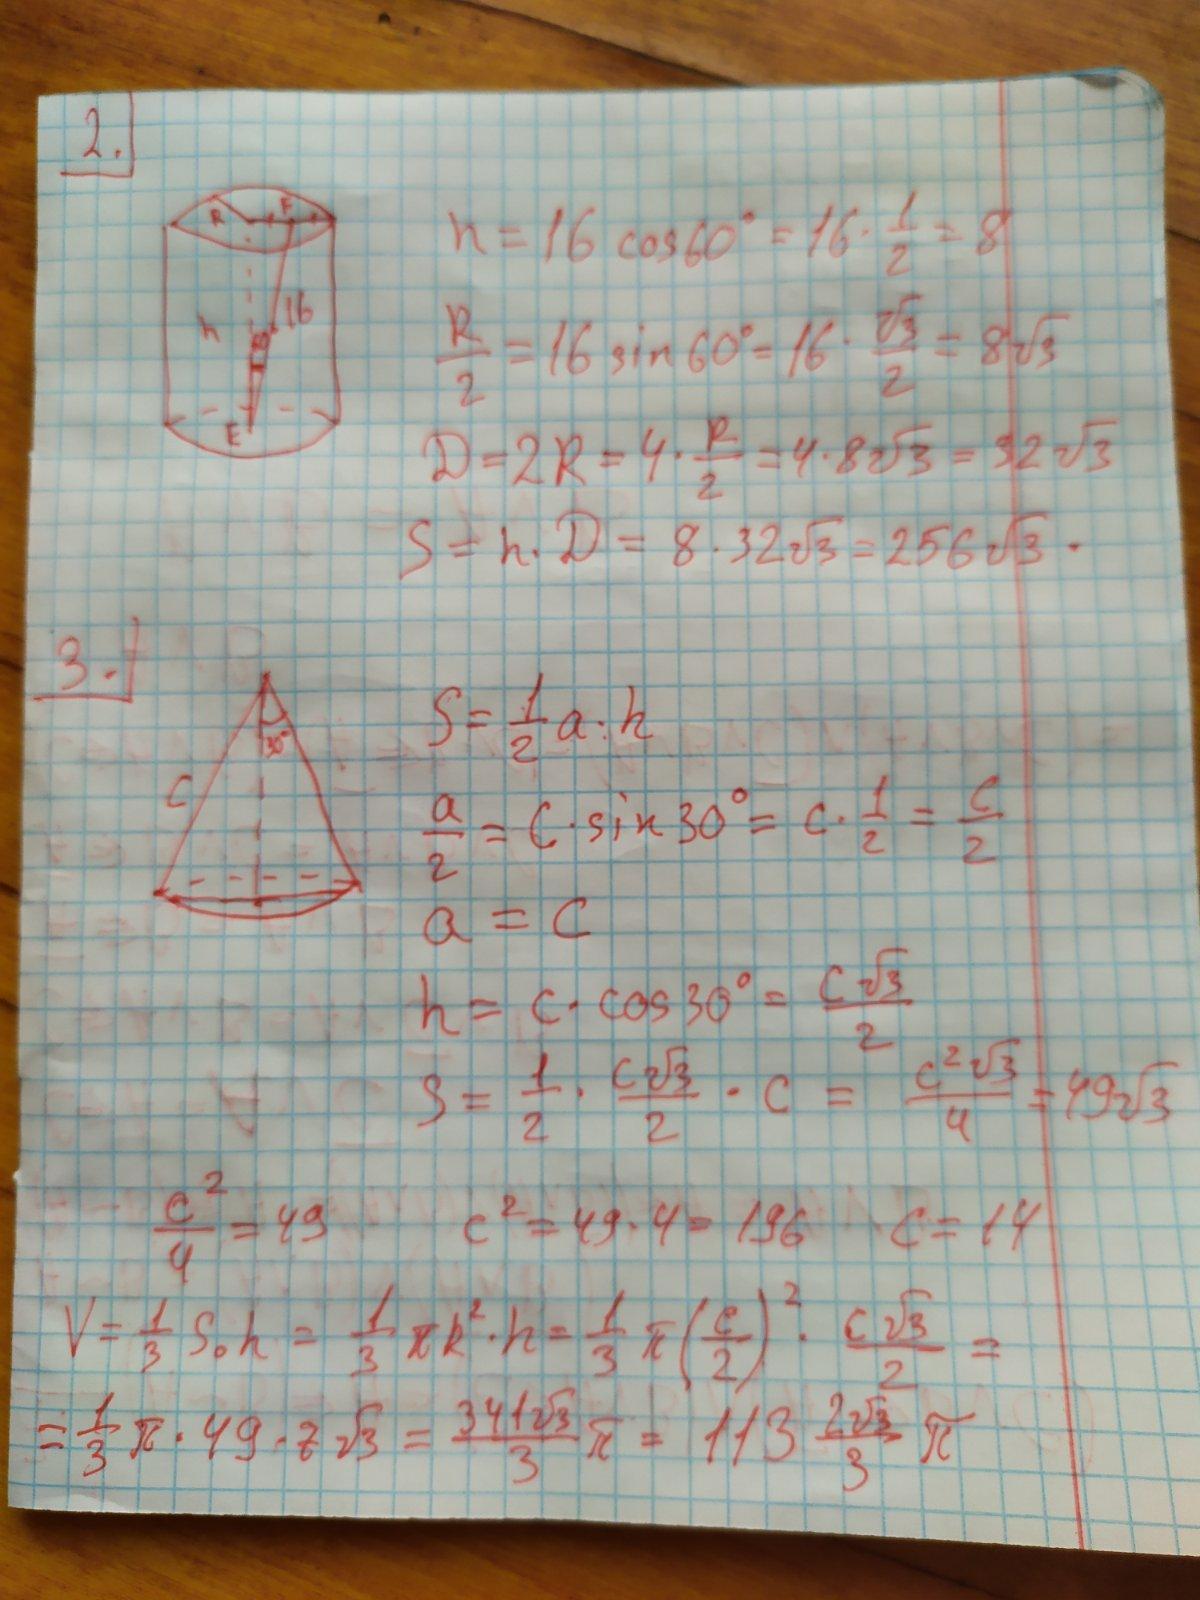 2.
R F
h 16
60°
E
h = 16 cos60° = 16 · 1/2 = 8
R/2 = 16 sin60° = 16 · √3/2 = 8√3
D = 2R = 4 · R/2 = 4 · 8√3 = 32√3
S = h · D = 8 · 32√3 = 256√3 .
3.
30°
C
S = 1/2 a · h
a/2 = C · sin30° = c · 1/2 = c/2
a = C
h = c · cos30° = c√3/2
S = 1/2 · c√3/2 · c = c²√3/4 = 49√3
c²/4 = 49 c² = 49 · 4 = 196 C = 14
V = 1/3 S₀h = 1/3 πR² · h = 1/3 π(c/2)² · c√3/2 =
= 1/3 π · 49 · 7√3 = 341√3/3 π = 113 2√3/3 π